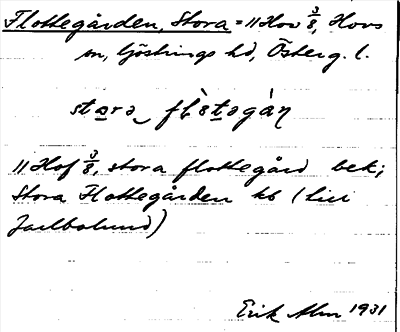 Flottegården, Stora = "Hov 3/8, Hovs
sn, Göstrings hd, Österg. l.
stara flòtəgàṇ
"Hof 3/8, stora flottegård bek;
Stora Flottegården kb (
Jarlbolund)
Erik Alm 1931